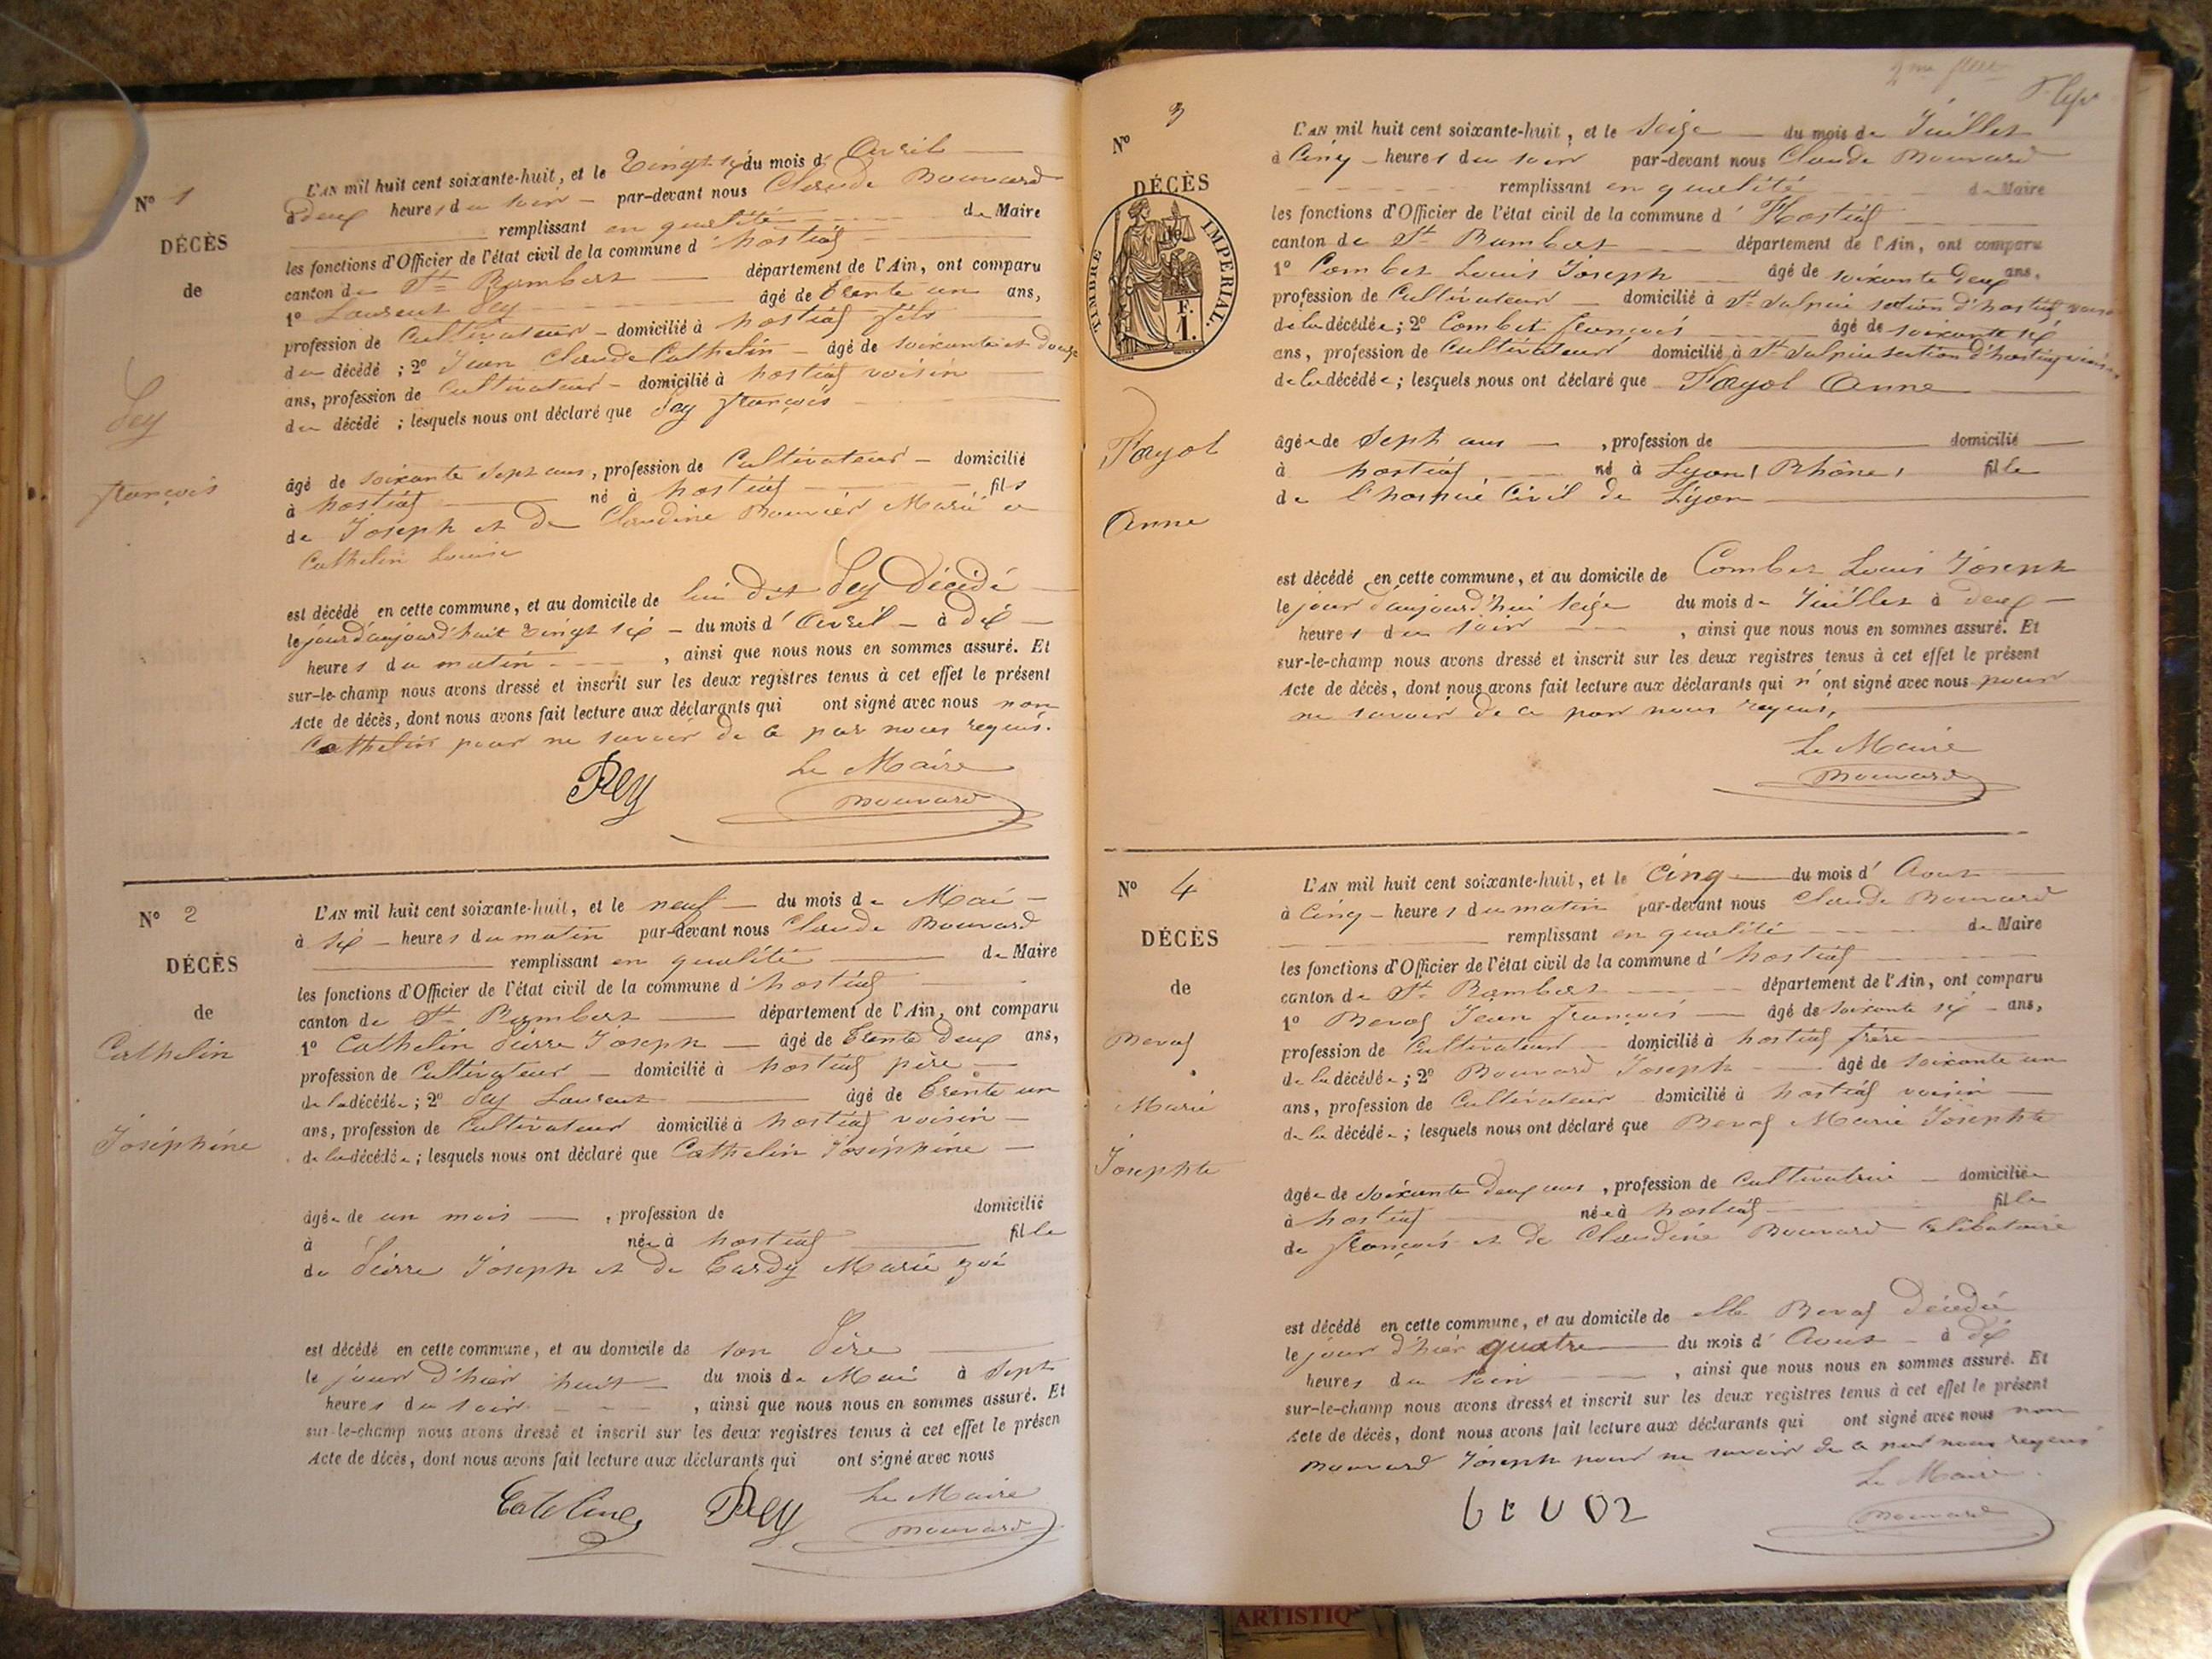 N° 1
DÉCÈS
de
Pey
françois
L'AN mil huit cent soixante-huit, et le Vingt six du mois d' Avril
à Deux heures du soir par-devant nous Claude Bouvard
remplissant en qualité de Maire
les fonctions d'Officier de l'état civil de la commune d' hostiaz
canton de St Rambert département de l'Ain, ont comparu
1° Laurent Pey âgé de trente un ans,
profession de Cultivateur domicilié à hostiaz fils
du décédé ; 2° Jean Claude Cathelin âgé de soixante et douze
ans, profession de Cultivateur domicilié à hostiaz voisin
du décédé ; lesquels nous ont déclaré que Pey françois
âgé de soixante sept ans, profession de Cultivateur domicilié
à hostiaz né à hostiaz fils
de Joseph et de Claudine Bouvier Marié a
Cathelin Louise
est décédé en cette commune, et au domicile de lui dit Pey Décédé
le jour d'aujourd'huit vingt six du mois d' Avril à dix
heures du matin , ainsi que nous nous en sommes assuré. Et
sur-le-champ nous avons dressé et inscrit sur les deux registres tenus à cet effet le présent
Acte de décès, dont nous avons fait lecture aux déclarants qui ont signé avec nous non
Cathelin pour ne savoir de ce par nous requis.
Le Maire
Rey Bouvard
N° 2
DÉCÈS
de
Cathelin
Joséphine
L'AN mil huit cent soixante-huit, et le neuf du mois de Mai
à six heures du matin par-devant nous Claude Bouvard
remplissant en qualité de Maire
les fonctions d'Officier de l'état civil de la commune d' hostiaz
canton de St Rambert département de l'Ain, ont comparu
1° Cathelin Pierre Joseph âgé de trente Deux ans,
profession de Cultivateur domicilié à hostiaz père
de la décédée ; 2° Pey Laurent âgé de trente un
ans, profession de Cultivateur domicilié à hostiaz voisin
de la décédée ; lesquels nous ont déclaré que Cathelin Joséphine
âgée de un mois , profession de domicilié
à née à hostiaz fille
de Pierre Joseph et de Tardy Marie
est décédé en cette commune, et au domicile de son Père
le jour d'hier huit du mois de Mai à Sept
heures du soir , ainsi que nous nous en sommes assuré. Et
sur-le-champ nous avons dressé et inscrit sur les deux registres tenus à cet effet le présen
Acte de décès, dont nous avons fait lecture aux déclarants qui ont signé avec nous
Le Maire
Rey Bouvard
N° 3
DÉCÈS
TIMBRE IMPERIAL.
F.
1.
Fayol
Anne
L'AN mil huit cent soixante-huit, et le Seize du mois de Juillet
à Cinq heures du soir par-devant nous Claude Bouvard
remplissant en qualité de Maire
les fonctions d'Officier de l'état civil de la commune d' Hostiaz
canton de St Rambert département de l'Ain, ont comparu
1° Combet Louis Joseph âgé de soixante Deux ans,
profession de Cultivateur domicilié à St Sulpice section d'hostiaz voisin
de la décédée ; 2° Combet françois âgé de soixante six
ans, profession de Cultivateur domicilié à St Sulpice section d'hostiaz voisin
de la décédée ; lesquels nous ont déclaré que Fayol Anne
âgée de Sept ans , profession de domicilié
à hostiaz né à Lyon (Rhône) fille
de l'hospice Civil de Lyon
est décédé en cette commune, et au domicile de Combet Louis Joseph
le jour d'aujourd'hui seize du mois de Juillet à deux
heures du soir , ainsi que nous nous en sommes assuré. Et
sur-le-champ nous avons dressé et inscrit sur les deux registres tenus à cet effet le présent
Acte de décès, dont nous avons fait lecture aux déclarants qui n'ont signé avec nous pour
ne savoir de ce par nous requis.
Le Maire
Bouvard
N° 4
DÉCÈS
de
Bevoz
Marie
Josephte
L'AN mil huit cent soixante-huit, et le Cinq du mois d' Aout
à Cinq heures du matin par-devant nous Claude Bouvard
remplissant en qualité de Maire
les fonctions d'Officier de l'état civil de la commune d' hostiaz
canton de St Rambert département de l'Ain, ont comparu
1° Bevoz Jean françois âgé de soixante six ans,
profession de Cultivateur domicilié à hostiaz frère
de la décédée ; 2° Bouvard Joseph âgé de soixante un
ans, profession de Cultivateur domicilié à hostiaz voisin
de la décédée ; lesquels nous ont déclaré que Bevoz Marie Josephte
âgée de soixante deux ans , profession de Cultivatrice domiciliée
à hostiaz née à hostiaz fille
de françois et de Claudine Bouvard Célibataire
est décédé en cette commune, et au domicile de elle Bevoz Décédée
le jour d'hier quatre du mois d' Aout à dix
heures du soir , ainsi que nous nous en sommes assuré. Et
sur-le-champ nous avons dressé et inscrit sur les deux registres tenus à cet effet le présent
Acte de décès, dont nous avons fait lecture aux déclarants qui ont signé avec nous non
Bouvard Joseph pour ne savoir de ce par nous requis
Le Maire
Bouvard
ARTISTIQ